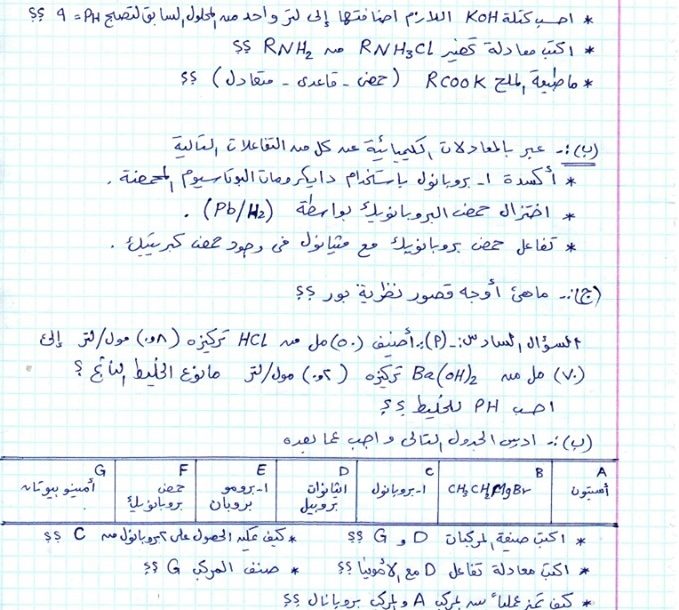 * احسب كتلة KOH اللازم اضافتها إلى لتر واحد من المحلول السابق لتصبح PH = ٩ ؟؟
* اكتب معادلة تحضير RNH3CL من RNH2 ؟؟
* ماطبيعة الملح RCOOK (حمضي - قاعدي - متعادل) ؟؟
(ب):- عبر بالمعادلات الكيميائية عن كل من التفاعلات التالية
* أكسدة ١- بروبانول باستخدام دايكرومات البوتاسيوم المحمضة .
* اختزال حمض البروبانويك بواسطة (Pb/H2) .
* تفاعل حمض بروبانويك مع ميثانول في وجود حمض كبريتيك .
(ج):- ماهي أوجه قصور نظرية بور ؟؟
السؤال السادس:- (٩): أضيف (٥٠) مل من HCL تركيزه (٠,٨) مول/لتر إلى
(٧٠) مل من Ba(OH)2 تركيزه (٠,٢) مول/لتر مانوع الخليط الناتج ؟
احسب PH للخليط ؟؟
(ب):- ادرس الجدول التالي و اجب عما بعده
A B C D E F G
أسيتون CH3CH2MgBr ١-بروبانول ايثانوات بروبيل ١-برومو بروبان حمض بروبانويك أمينو بيوتان
* اكتب صيغة المركبات D و G ؟؟ * كيف يمكن الحصول على ٢بروبانول من C ؟؟
* اكتب معادلة تفاعل D مع الامونيا ؟؟ * صنف المركب G ؟؟
* كيف تميز عمليا بين المركب A والمركب بروبانال ؟؟